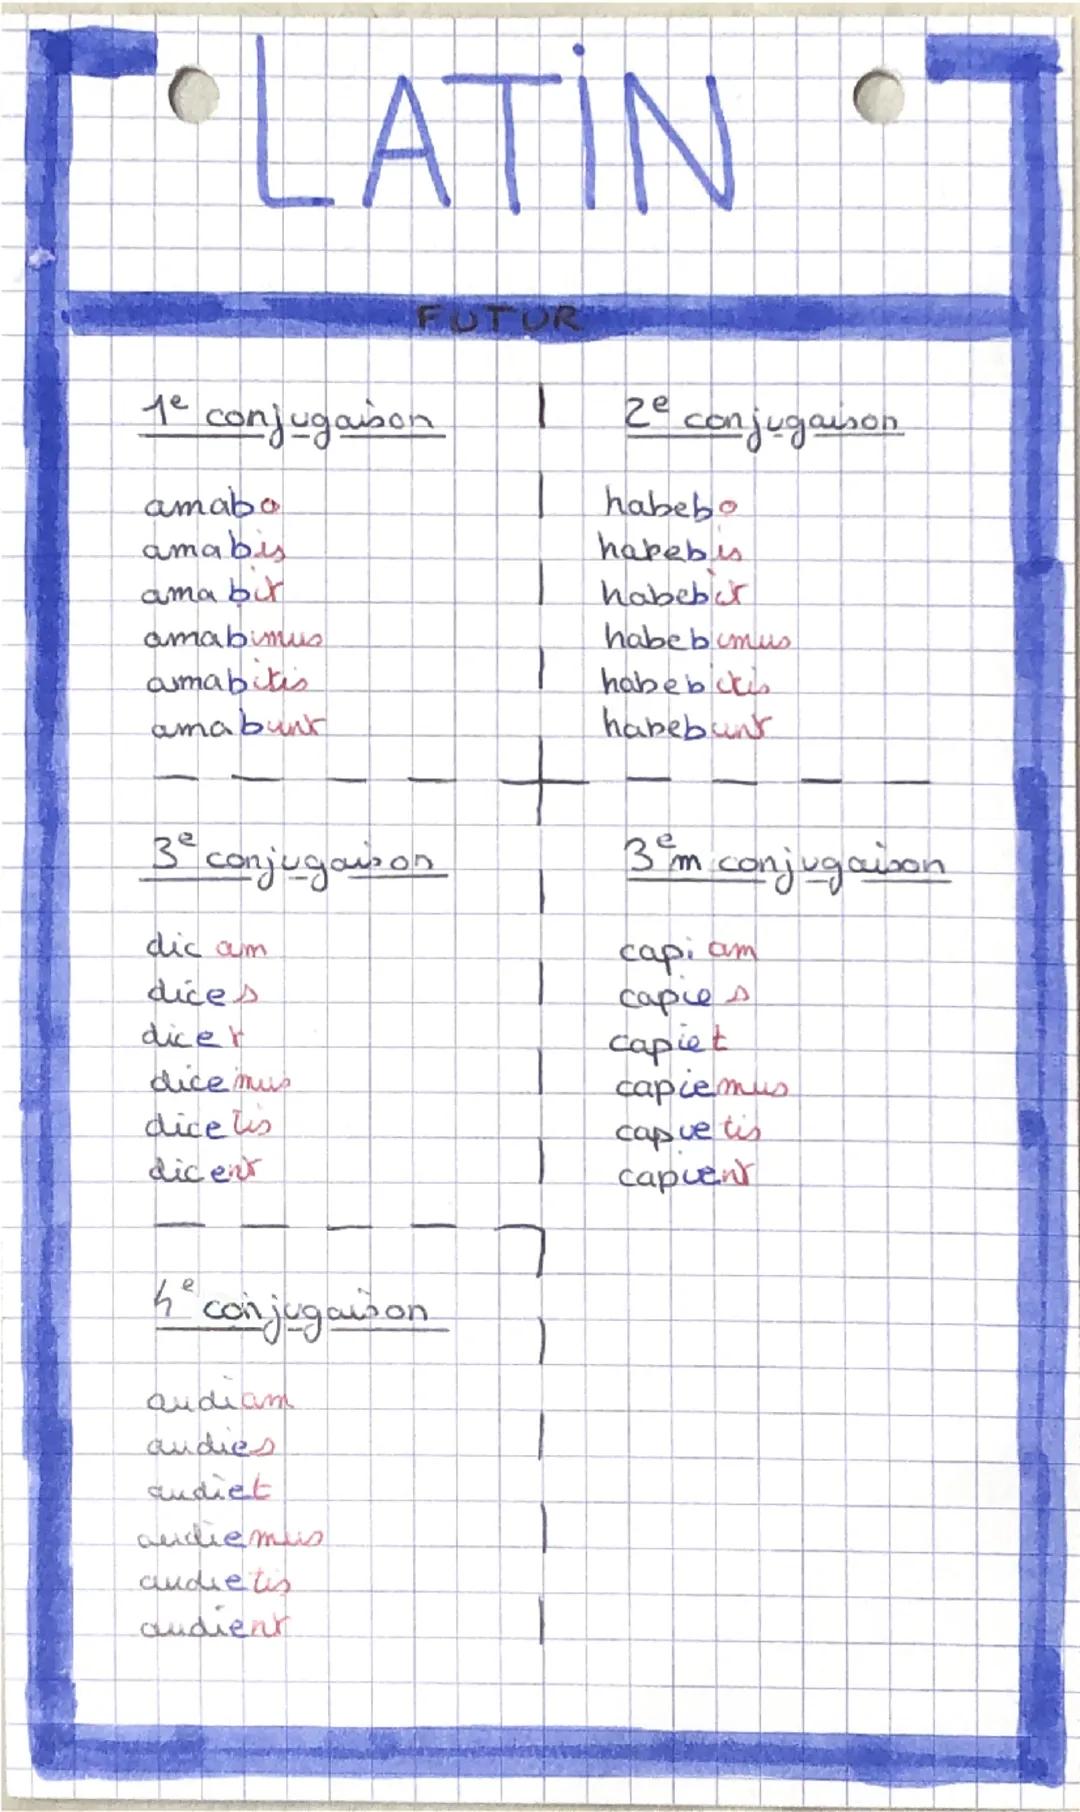 LATIN
FUTUR
1e conjugaison
amabo
amabis
amabit
amabimus
amabitis
amabunt
2e conjugaison
habebo
habebis
habebit
habebimus
habebitis
habebunt
3e conjugaison
dicam
dices
dicet
dicemus
dicetis
dicent
3em conjugaison
capiam
capies
capiet
capiemus
capietis
capient
4e conjugaison
audiam
audies
audiet
audiemus
audietis
audient